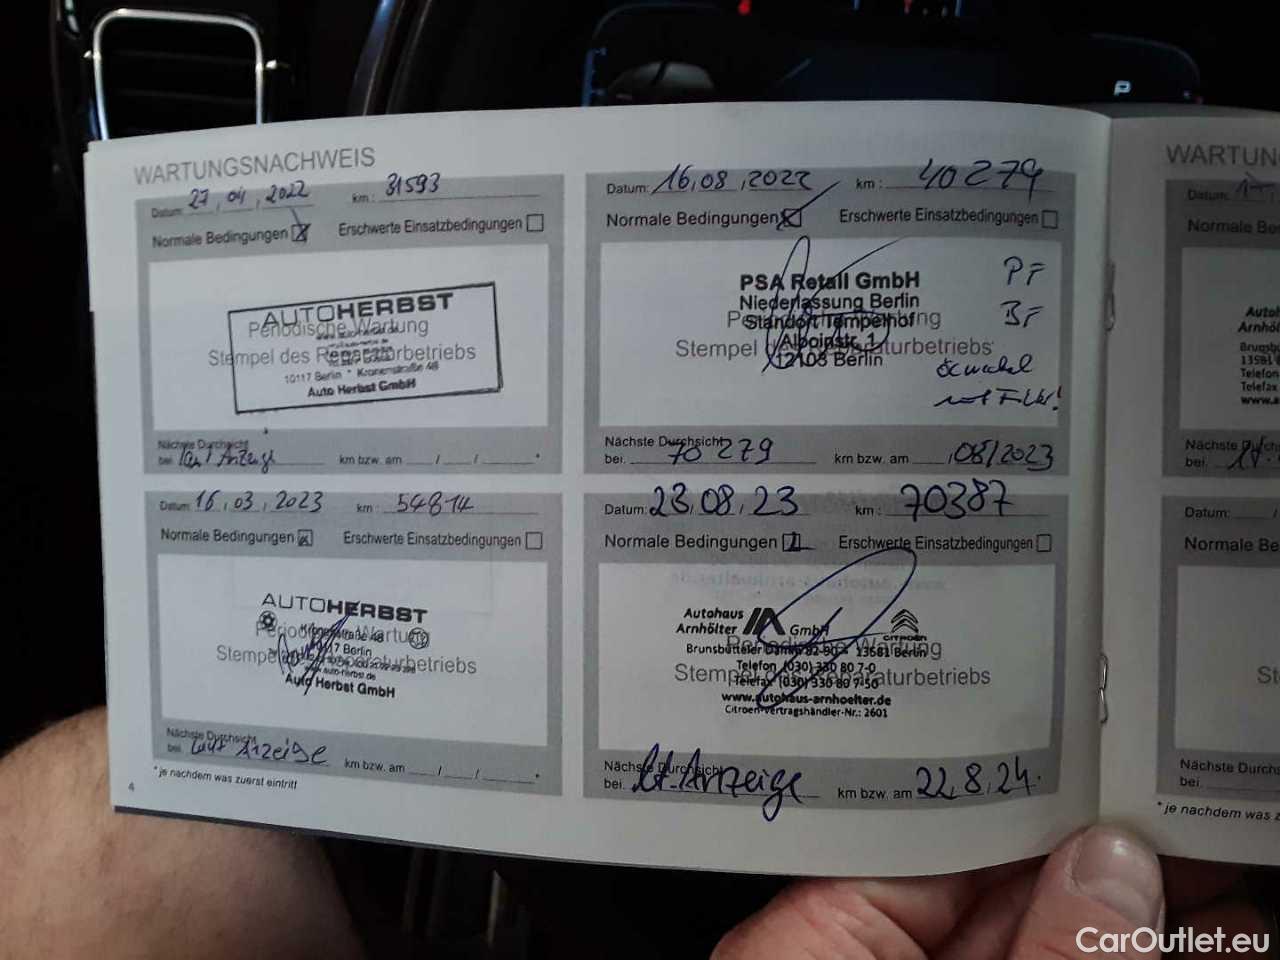 P
WARTUNGSNACHWEIS
Datum: 27, 04, 2022 km: 31593
Normale Bedingungen Erschwerte Einsatzbedingungen
AUTOHERBST
Periodische Wartung
Stempel des Reparaturbetriebs
10117 Berlin * Kronenstraße 48
Auto Herbst GmbH
Nächste Durchsicht
bei: laut Anzeige km bzw. am / / *
Datum: 16,08,2022 km: 40279
Normale Bedingungen Erschwerte Einsatzbedingungen
PSA Retail GmbH
Niederlassung Berlin
Standort Tempelhof
Alboinstr. 1
12103 Berlin
Stempel des Reparaturbetriebs
PF
BF
Ölwechsel
mit Filter!
Nächste Durchsicht
bei. 70279 km bzw. am 08/2023
Datum: 16, 03, 2023 km: 54814
Normale Bedingungen Erschwerte Einsatzbedingungen
AUTOHERBST
Kronenstraße 48
10117 Berlin
Periodische Wartung
Stempel des Reparaturbetriebs
www.auto-herbst.de
Auto Herbst GmbH
Nächste Durchsicht
bei: laut Anzeige km bzw. am / / *
* je nachdem was zuerst eintritt
4
Datum: 23,08,23 km: 70387
Normale Bedingungen Erschwerte Einsatzbedingungen
Autohaus
Arnhölter GmbH CITROËN
Periodische Wartung
Brunsbütteler Damm 13581 Berlin
Telefon (030) 330 80 7-0
Stempel des Reparaturbetriebs
Telefax (030) 330 80 7-50
www.autohaus-arnhoelter.de
Citroën-Vertragshändler-Nr.: 2601
Nächste Durchsicht
bei. lt. Anzeige km bzw. am 22,8,24.
WARTUN
Datum:
Normale Be
Autoh
Arnhö
Brunsbü
13581
Telefon
Telefax
www.a
Nächste Durch
bei.
Datum:
Normale Be
St
Nächste Durchs
bei.
* je nachdem was z
CarOutlet.eu